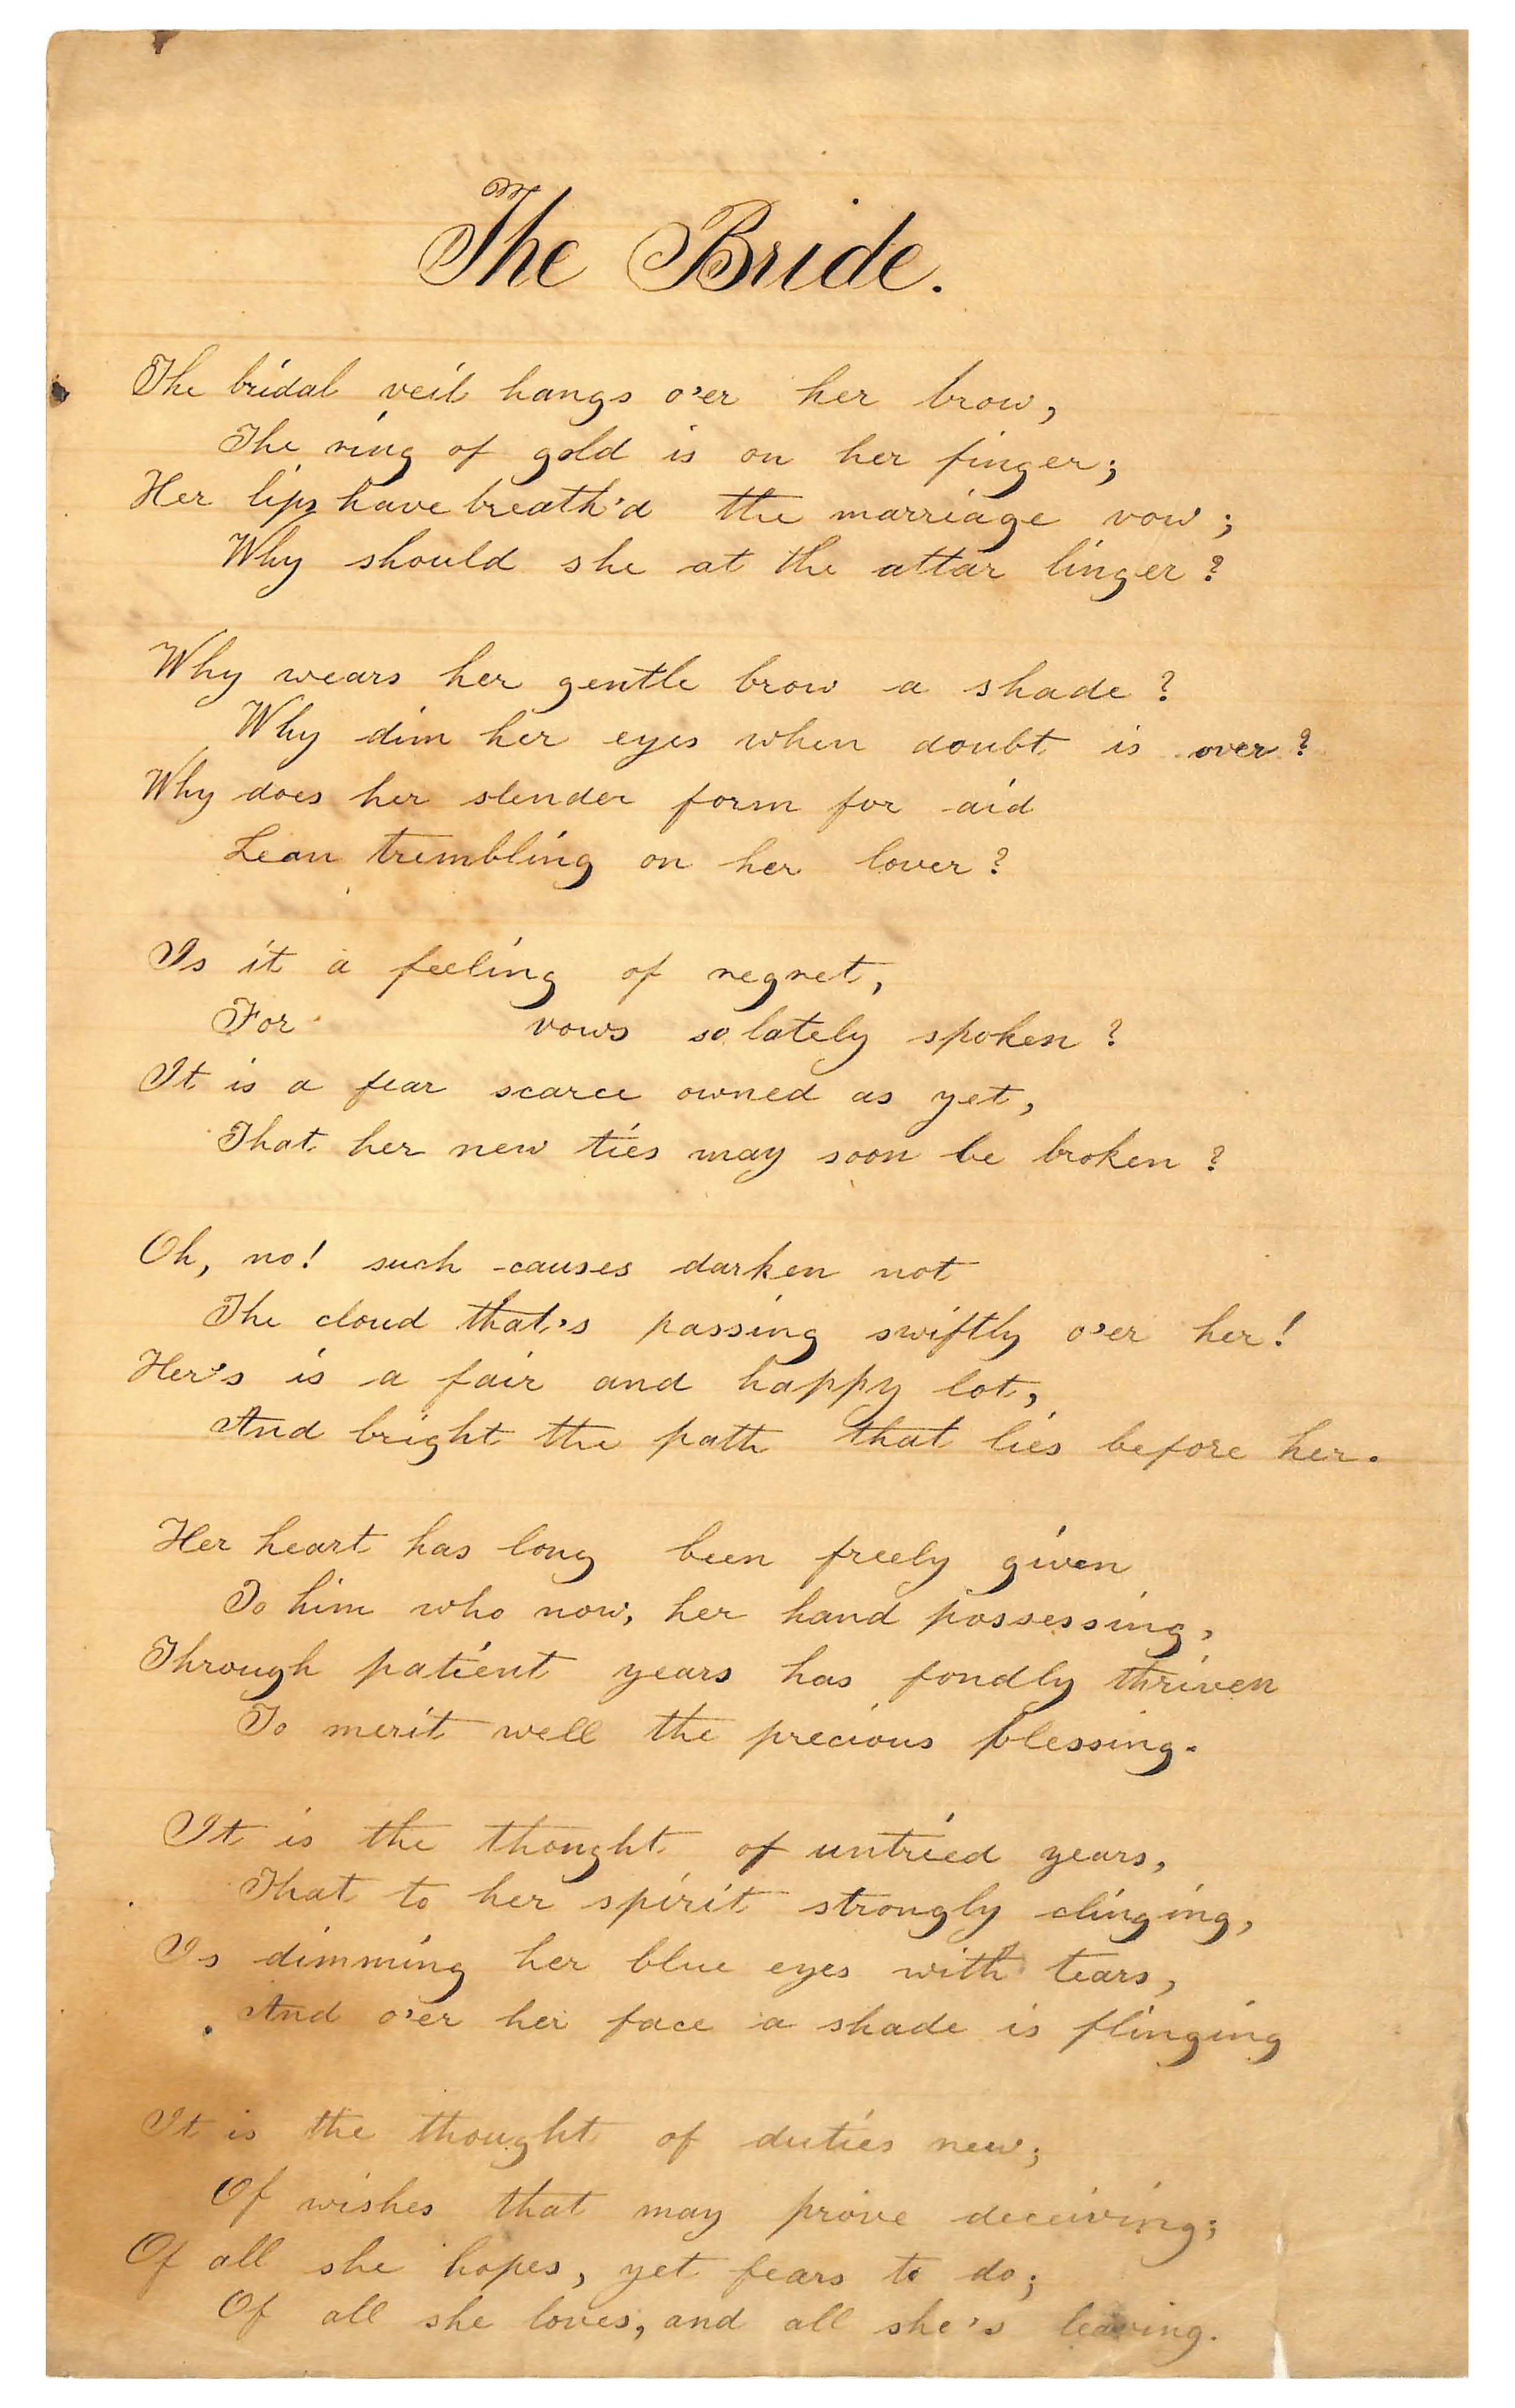 The Bride.
The bridal veil hangs o'er her brow,
The ring of gold is on her finger;
Her lips have breath'd the marriage vow;
Why should she at the altar linger?
Why wears her gentle brow a shade?
Why dim her eyes when doubt is over?
Why does her slender form for aid
Lean trembling on her lover?
Is it a feeling of regret,
For vows so lately spoken?
It is a fear scarce owned as yet,
That her new ties may soon be broken?
Oh, no! such causes darken not
The cloud that's passing swiftly o'er her!
Her's is a fair and happy lot,
And bright the path that lies before her.
Her heart has long been freely given
To him who now, her hand possessing,
Through patient years has fondly thriven
To merit well the precious blessing.
It is the thought of untried years,
That to her spirit strongly clinging,
Is dimming her blue eyes with tears,
And o'er her face a shade is flinging
It is the thought of duties new;
Of wishes that may prove deceiving;
Of all she hopes, yet fears to do;
Of all she loves, and all she's leaving.